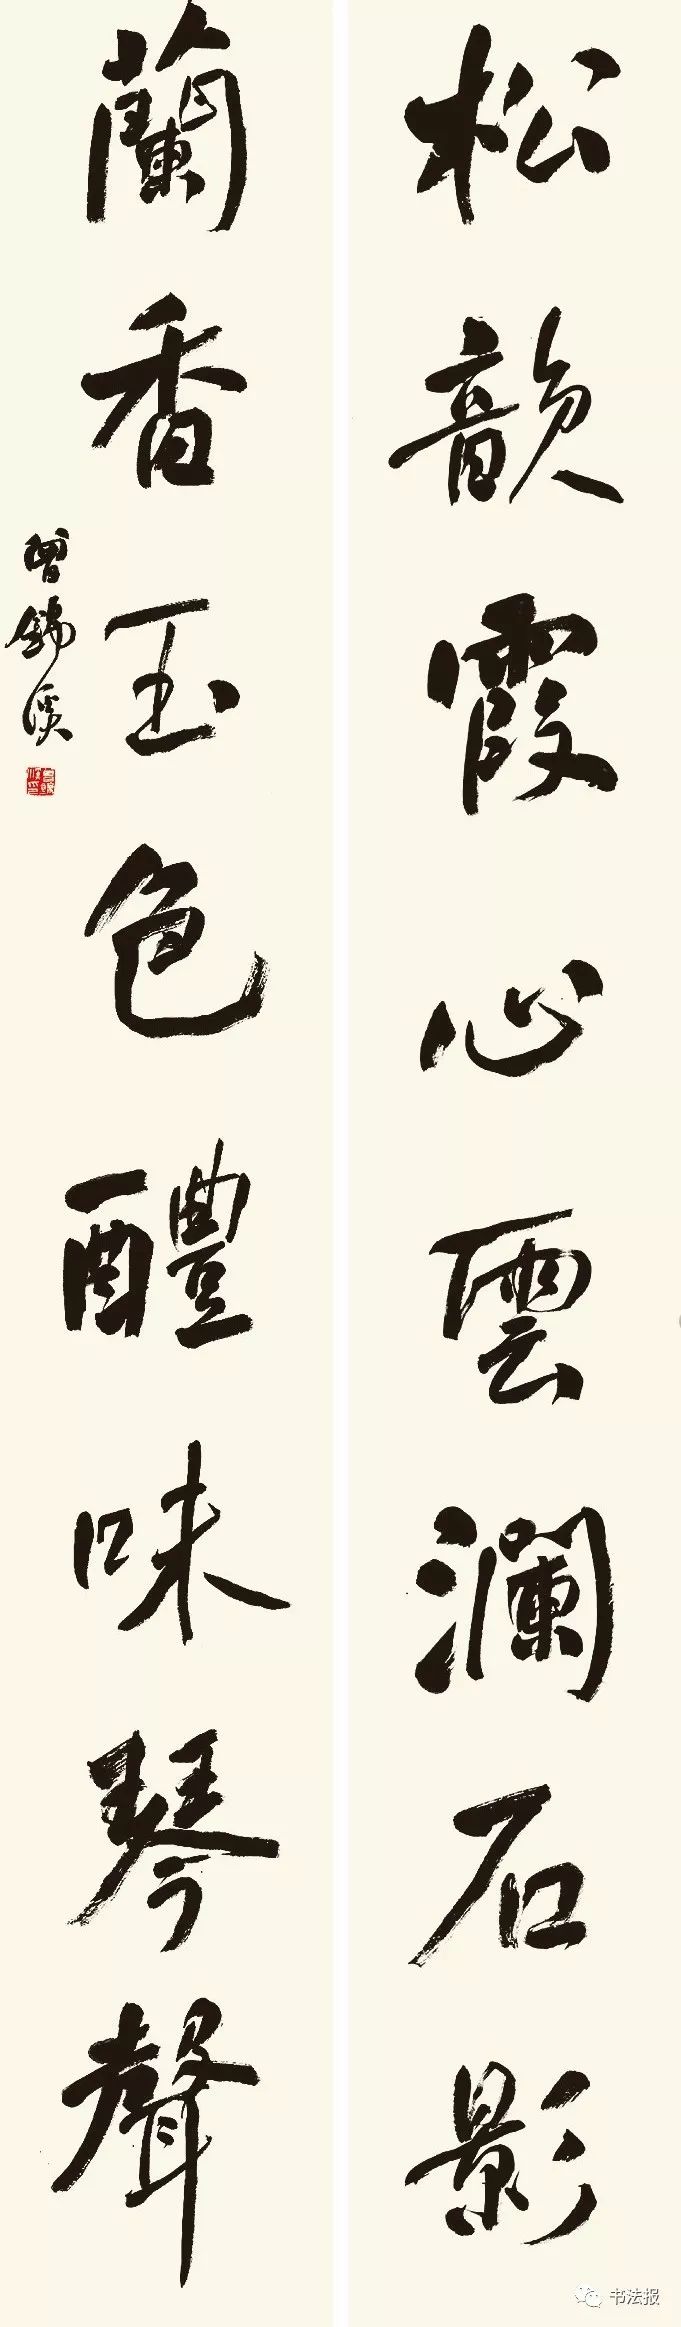 松韻霞心雲瀾石影
蘭香玉色醴味琴聲
曾錦溪
书法报